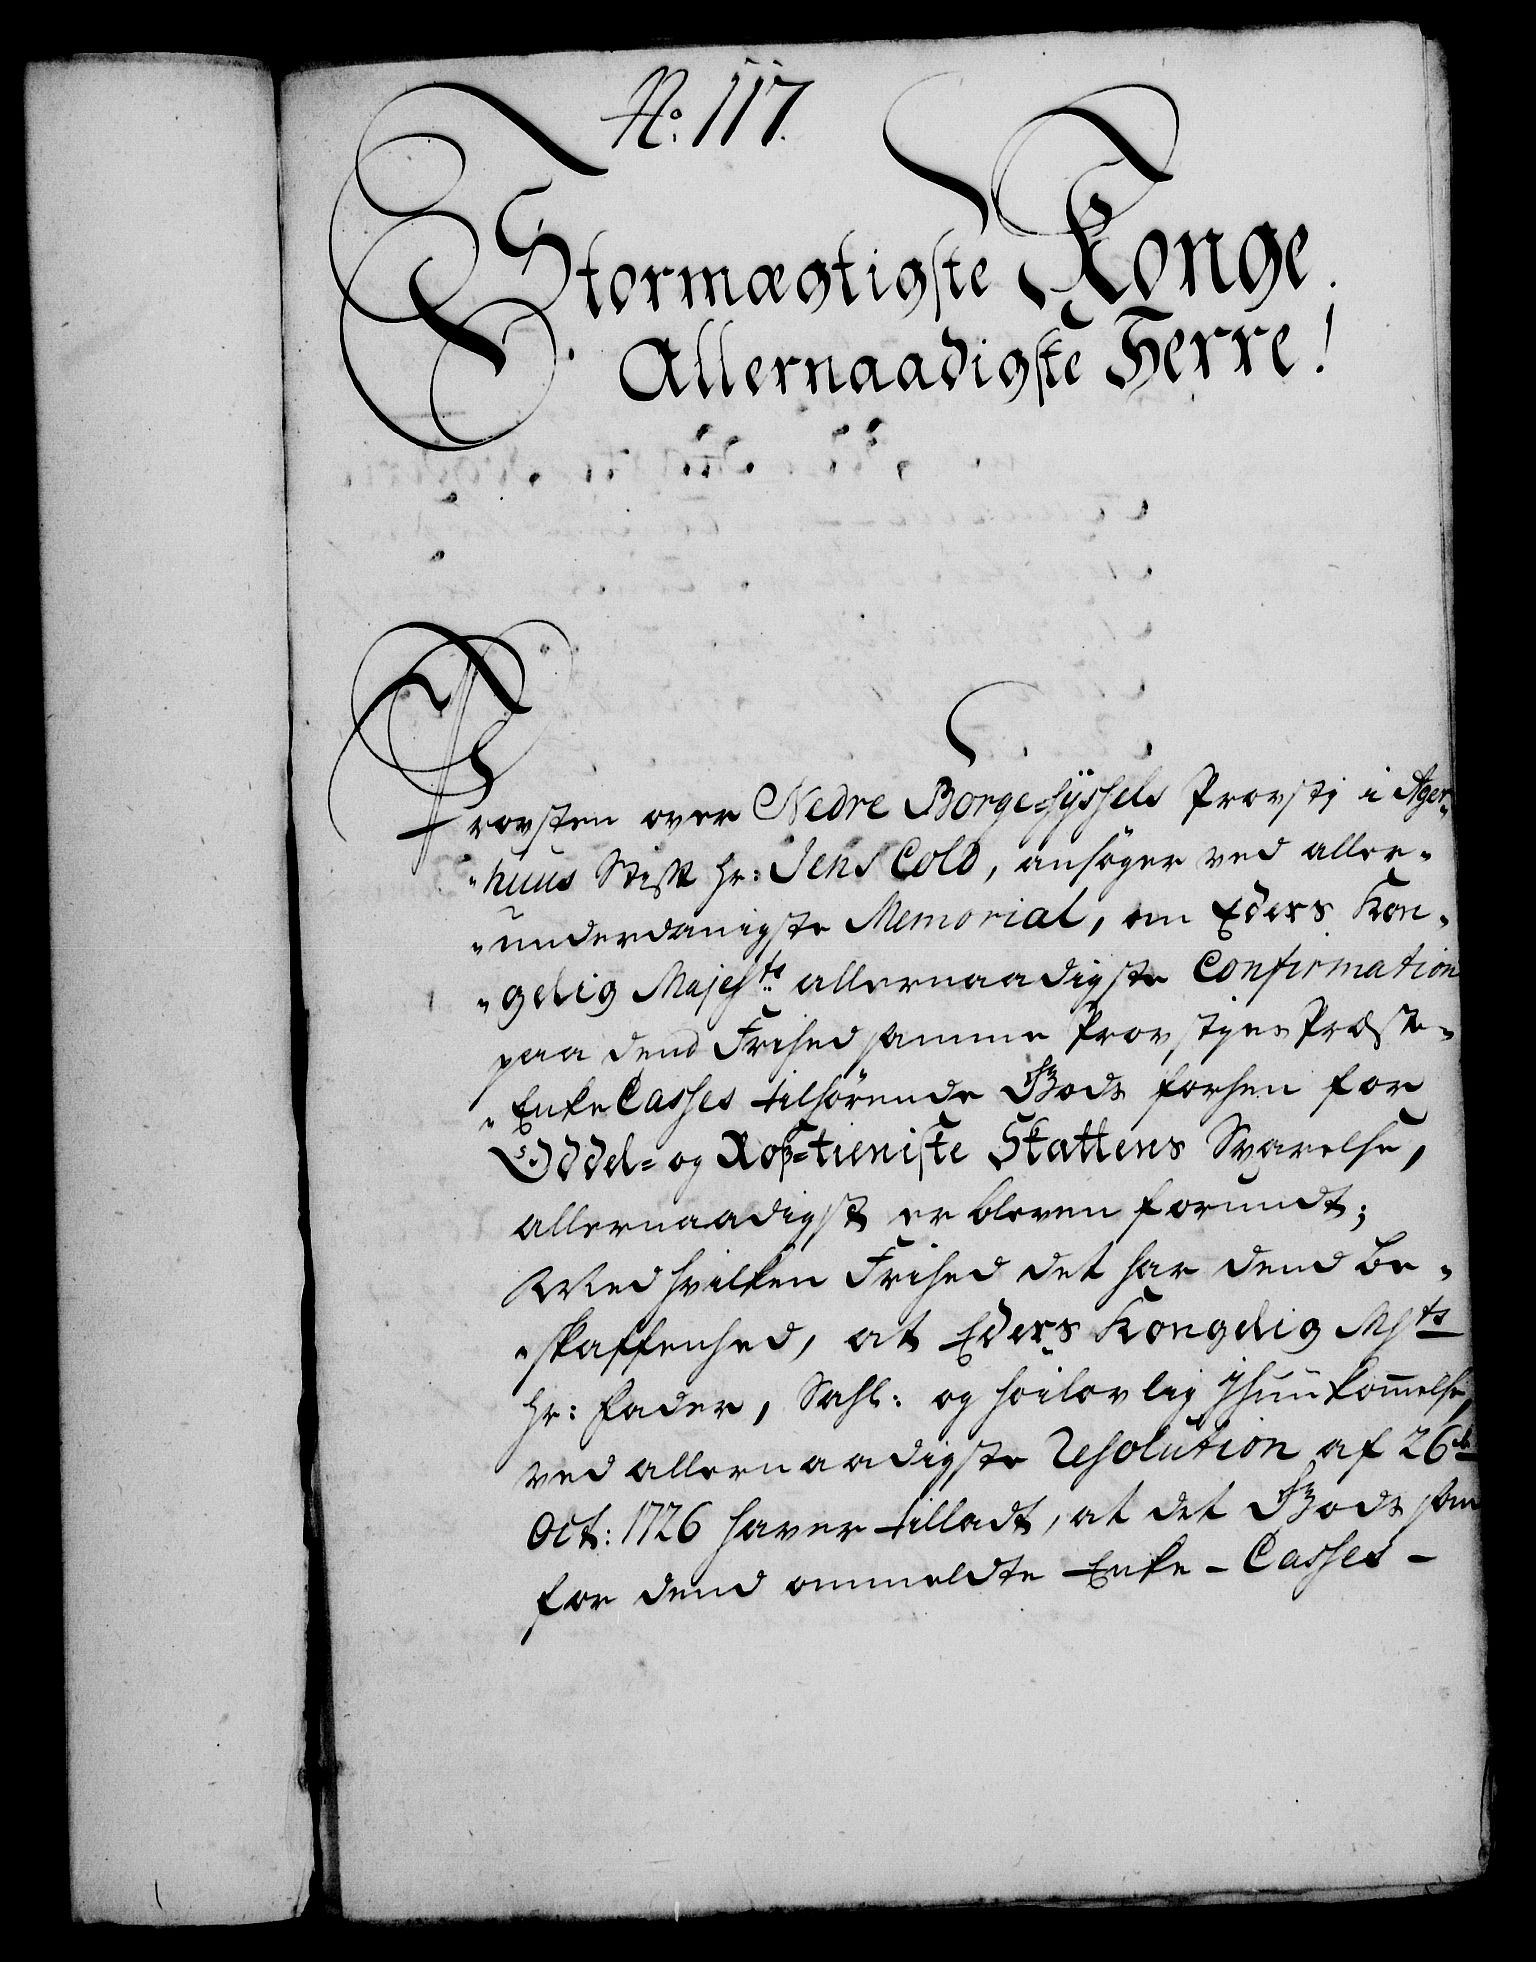 No. 117.
Stormægtigste Konge.
Allernaadigste Herre!
Provsten over Nedre Borge-Sÿssels Provstj i Ager-
-huus Stift Hr: Jens Cold, ansøger ved aller-
-underdanigste Memorial, om Eders Kon-
-gelig Majestts allernaadigste Confirmation
paa dend Frihed samme Provstjes Præste-
-Enke Casses tilhörende Gods forhen for
Oddel- og Roß-tieniste Skattens Svarelse,
allernaadigst er bleven forundt;
Med hvilken Frihed det har dend be-
-skaffenhed, at Eders Kongelig Mſts
Hr: Fader, Sahl: og høilovlig Jhuukom̄melse,
ved allernaadigste Resolution af 26de
Oct: 1726 haver tilladt, at det Gods som
for dend ommeldte Enke-Casses-